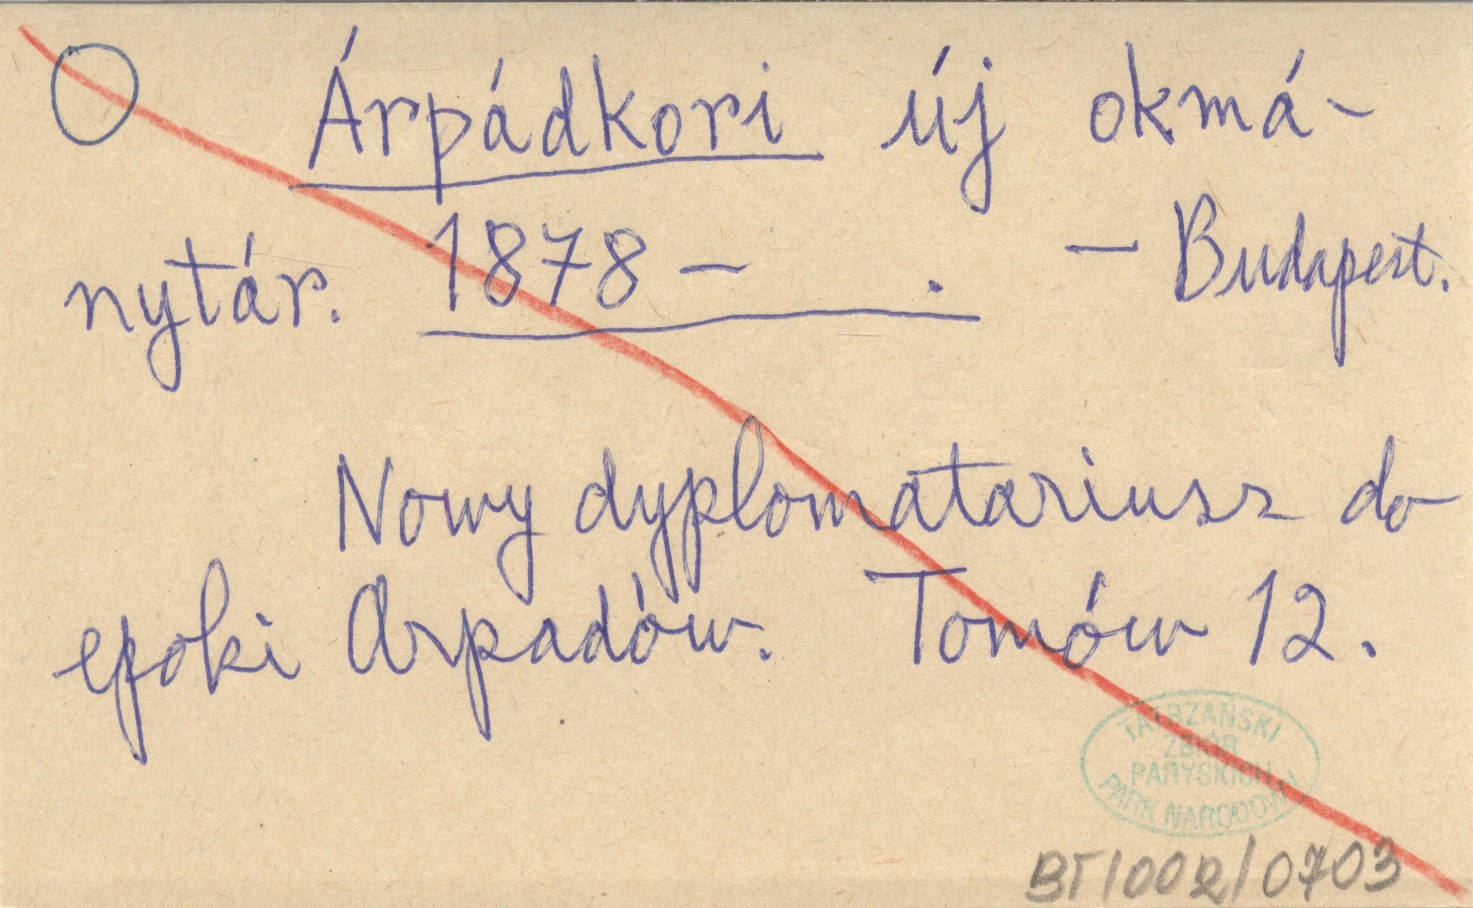 Árpádkori új okmá-
nytár. 1878 – . – Budapest.
Nowy dyplomatariusz do
epoki Arpadów. Tomów 12.
TATRZAŃSKI
ZBIÓR
PARYSKICH
PARK NARODOWY
BT/002/0703